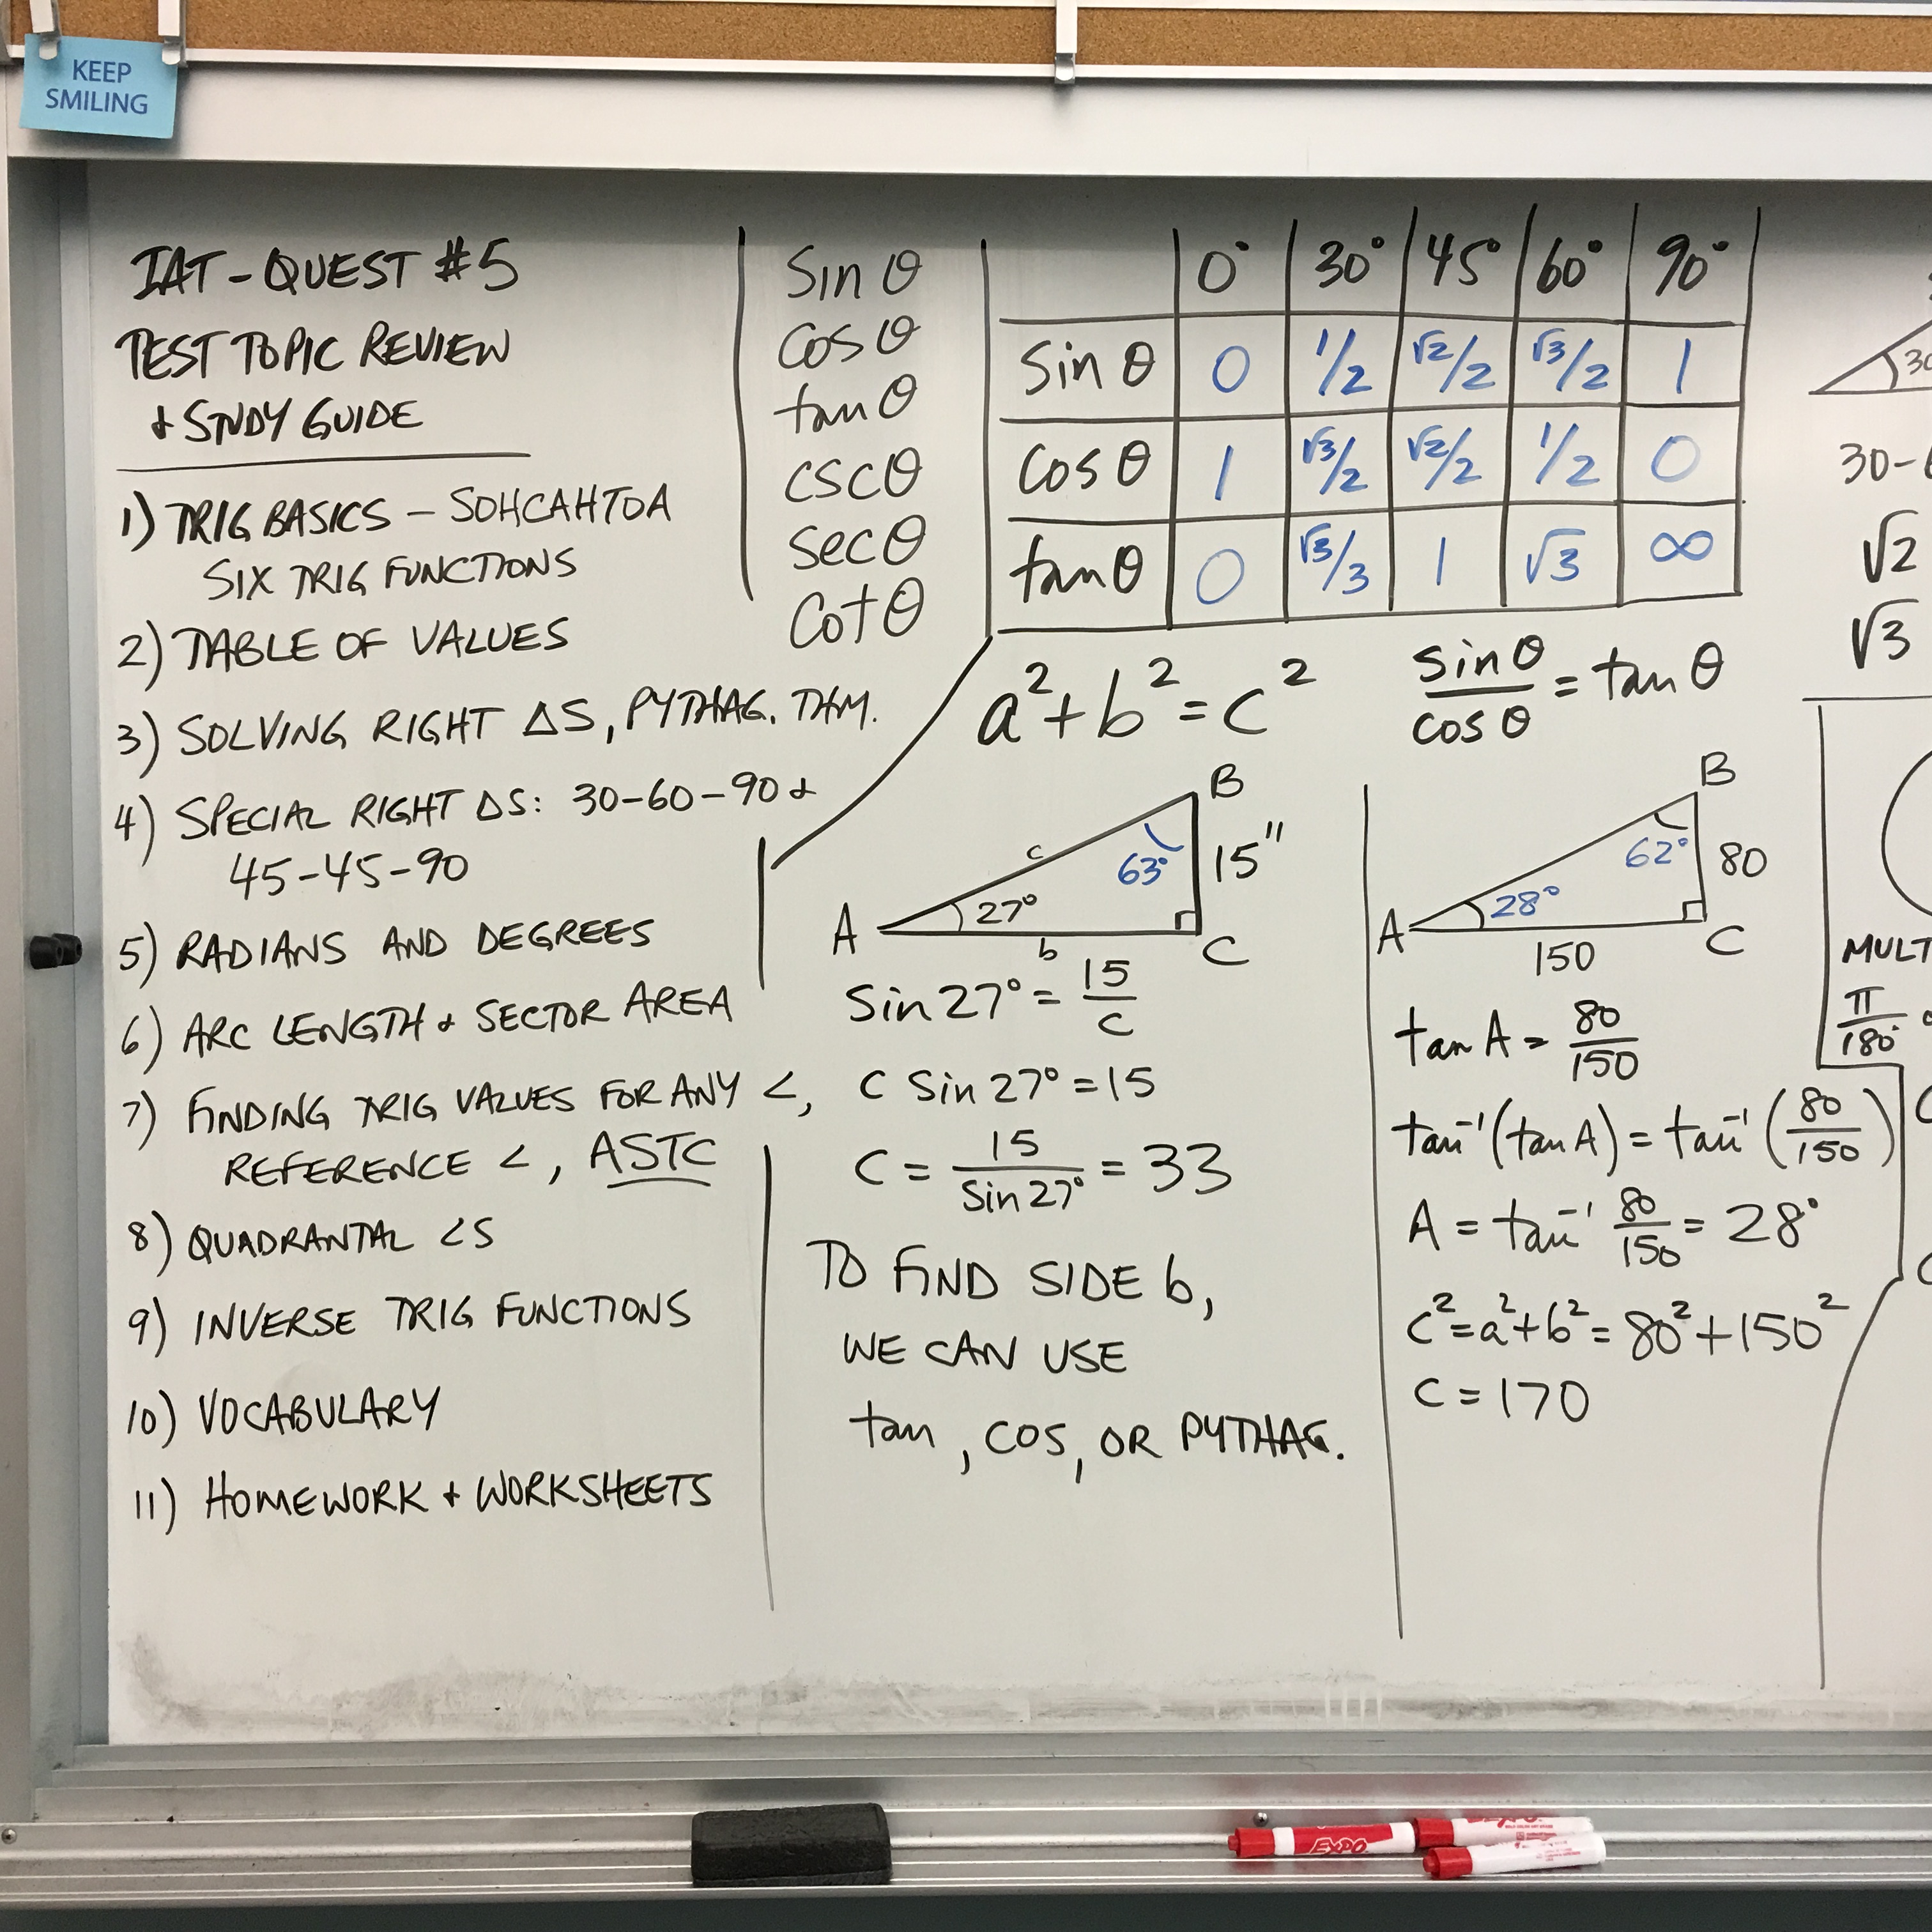 KEEP
SMILING
IAT - QUEST #5
TEST TOPIC REVIEW
& STUDY GUIDE
1) TRIG BASICS - SOHCAHTOA
SIX TRIG FUNCTIONS
2) TABLE OF VALUES
3) SOLVING RIGHT ΔS, PYTHAG. THM.
4) SPECIAL RIGHT ΔS: 30-60-90 &
45-45-90
5) RADIANS AND DEGREES
6) ARC LENGTH & SECTOR AREA
7) FINDING TRIG VALUES FOR ANY <,
REFERENCE <, ASTC
8) QUADRANTAL <S
9) INVERSE TRIG FUNCTIONS
10) VOCABULARY
11) HOMEWORK + WORKSHEETS
Sin θ
Cos θ
tan θ
csc θ
sec θ
Cot θ
0° 30° 45° 60° 90°
Sin θ 0 1/2 √2/2 √3/2 1
Cos θ 1 √3/2 √2/2 1/2 0
tan θ 0 √3/3 1 √3 ∞
a² + b² = c²
sin θ / cos θ = tan θ
B
c
63°
15"
A
27°
b
C
Sin 27° = 15/c
C Sin 27° = 15
C = 15 / Sin 27° = 33
TO FIND SIDE b,
WE CAN USE
tan, COS, OR PYTHAG.
B
62°
80
A
28°
150
C
tan A = 80/150
tan⁻¹(tan A) = tan⁻¹(80/150)
A = tan⁻¹ 80/150 = 28°
c² = a² + b² = 80² + 150²
C = 170
30
30-
√2
√3
MULT
π/180°
EXPO
EXPO